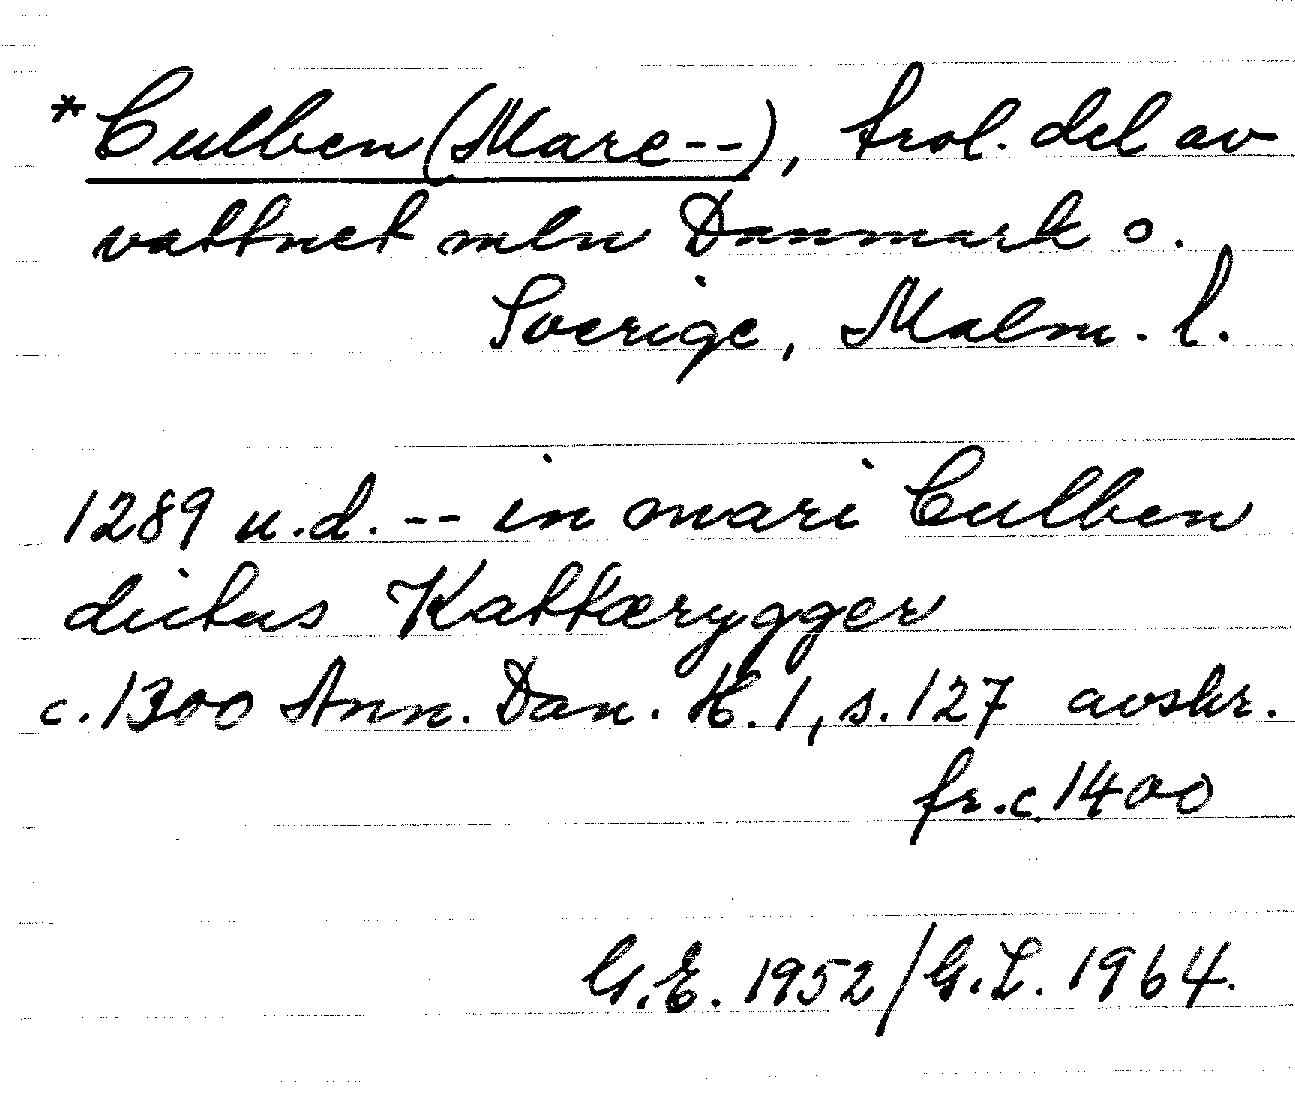 *Culben (Mare--), trol. del av
vattnet mln Danmark o.
Sverige, Malm. l.
1289 u.d. -- in mari Culben
dictus Kattærygger
c. 1300 Ann. Dan. H. 1, s. 127 avskr.
fr. c. 1400
G.E. 1952/G.L. 1964.